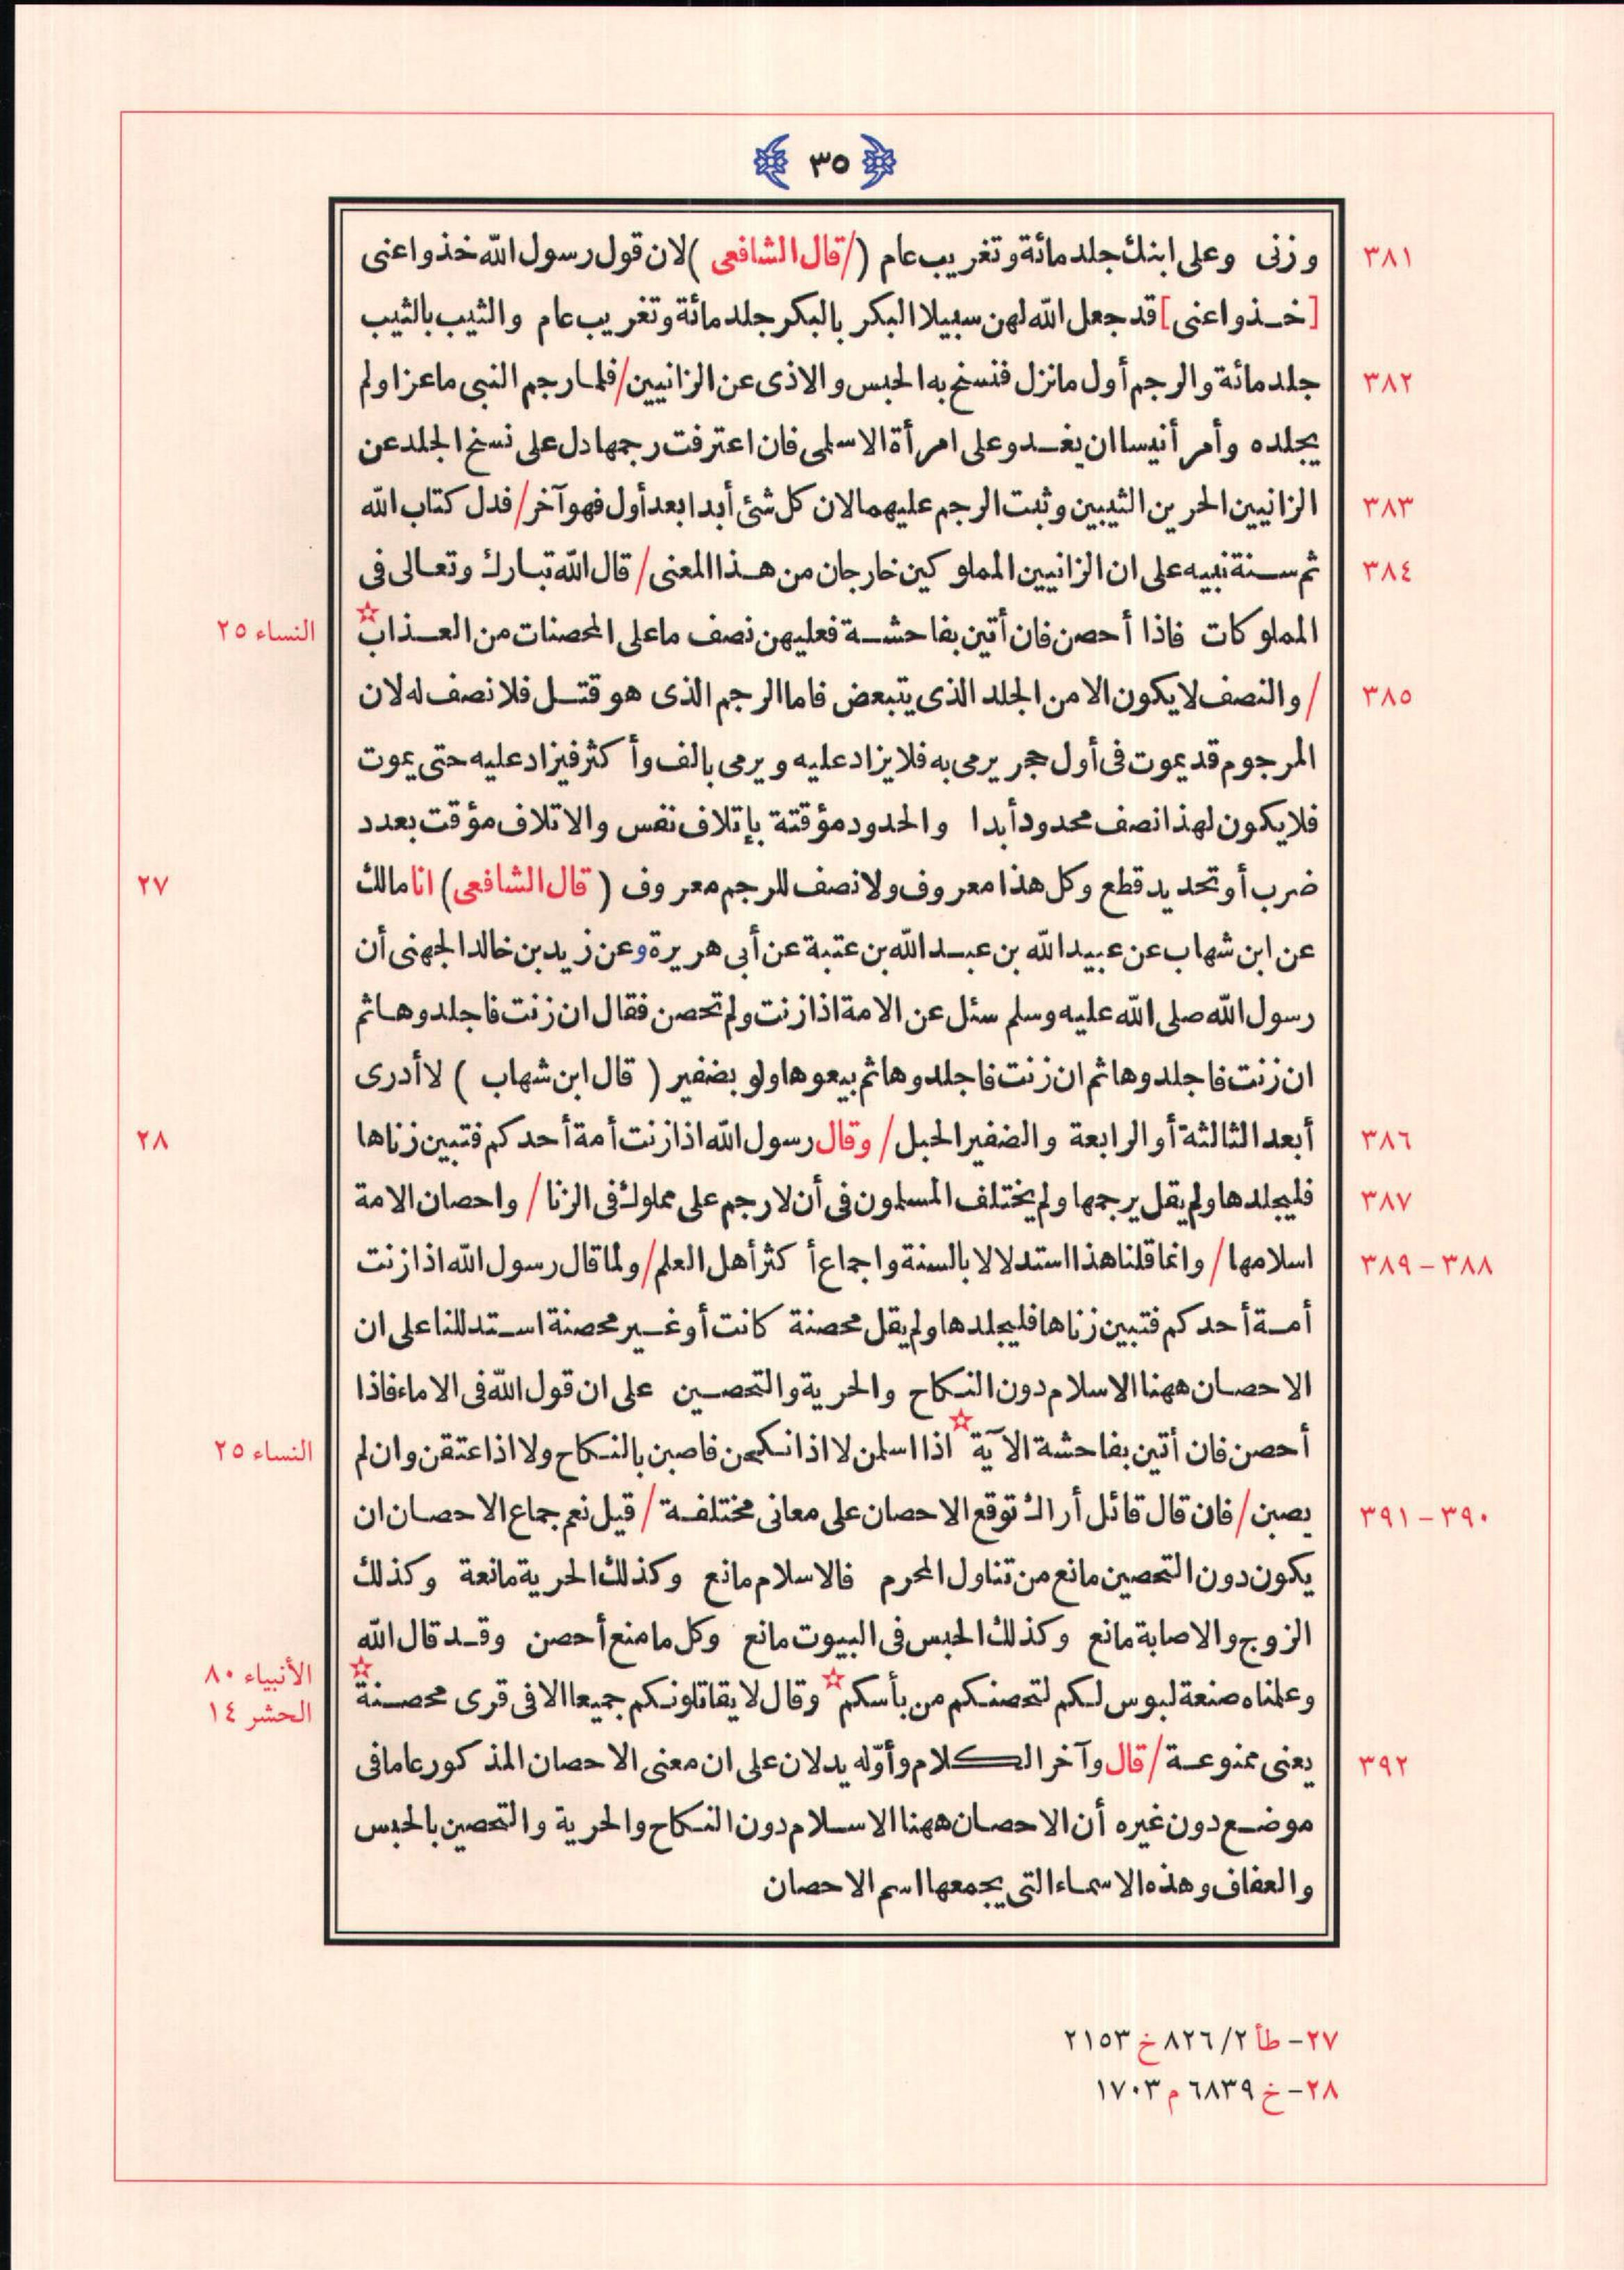 ٣٥
وزنى وعلى ابنك جلد مائة وتغريب عام (/قال الشافعى )لان قول رسول الله خذوا عنى ٣٨١
[خذوا عنى] قد جعل الله لهن سبيلا البكر بالبكر جلد مائة وتغريب عام والثيب بالثيب
جلد مائة والرجم أول ما نزل فنسخ به الحبس والاذى عن الزانيين/فلما رجم النبى ماعزا ولم ٣٨٢
يجلده وأمر أنيسا ان يغدو على امرأة الاسلمى فان اعترفت رجمها دل على نسخ الجلد عن
الزانيين الحرين الثيبين وثبت الرجم عليهما لان كل شئ أبدا بعد أول فهو آخر/فدل كتاب الله ٣٨٣
ثم سنة نبيه على ان الزانيين المملوكين خارجان من هذا المعنى/قال الله تبارك وتعالى فى ٣٨٤
المملوكات فاذا أحصن فان أتين بفاحشة فعليهن نصف ما على المحصنات من العذاب☆ النساء ٢٥
/والنصف لا يكون الا من الجلد الذى يتبعض فاما الرجم الذى هو قتل فلا نصف له لان ٣٨٥
المرجوم قد يموت فى أول حجر يرمى به فلا يزاد عليه ويرمى بالف وأكثر فيزاد عليه حتى يموت
فلا يكون لهذا نصف محدود أبدا والحدود مؤقتة بإتلاف نفس والاتلاف مؤقت بعدد
ضرب أو تحديد قطع وكل هذا معروف ولا نصف للرجم معروف (قال الشافعى) انا مالك ٢٧
عن ابن شهاب عن عبيد الله بن عبد الله بن عتبة عن أبى هريرة وعن زيد بن خالد الجهنى أن
رسول الله صلى الله عليه وسلم سئل عن الامة اذا زنت ولم تحصن فقال ان زنت فاجلدوها ثم
ان زنت فاجلدوها ثم ان زنت فاجلدوها ثم بيعوها ولو بضفير (قال ابن شهاب) لا أدرى
أبعد الثالثة أو الرابعة والضفير الحبل/وقال رسول الله اذا زنت أمة أحدكم فتبين زناها ٣٨٦ ٢٨
فليجلدها ولم يقل يرجمها ولم يختلف المسلمون فى أن لا رجم على مملوك فى الزنا/واحصان الامة ٣٨٧
اسلامها/وانما قلنا هذا استدلالا بالسنة واجماع أكثر أهل العلم/ولما قال رسول الله اذا زنت ٣٨٨-٣٨٩
أمة أحدكم فتبين زناها فليجلدها ولم يقل محصنة كانت أو غير محصنة استدللنا على ان
الاحصان ههنا الاسلام دون النكاح والحرية والتحصين على ان قول الله فى الاماء فاذا
أحصن فان أتين بفاحشة الآية☆ اذا اسلمن لا اذا نكحن فاصبن بالنكاح ولا اذا عتقن وان لم النساء ٢٥
يصبن/فان قال قائل أراك توقع الاحصان على معانى مختلفة/قيل نعم جماع الاحصان ان ٣٩٠-٣٩١
يكون دون التحصين مانع من تناول المحرم فالاسلام مانع وكذلك الحرية مانعة وكذلك
الزوج والاصابة مانع وكذلك الحبس فى البيوت مانع وكل ما منع أحصن وقد قال الله
وعلمناه صنعة لبوس لكم لتحصنكم من بأسكم☆ وقال لا يقاتلونكم جميعا الا فى قرى محصنة☆ الأنبياء ٨٠
الحشر ١٤
يعنى ممنوعة/قال وآخر الكلام وأوّله يدلان على ان معنى الاحصان المذكور عاما فى ٣٩٢
موضع دون غيره أن الاحصان ههنا الاسلام دون النكاح والحرية والتحصين بالحبس
والعفاف وهذه الاسماء التى يجمعها اسم الاحصان
٢٧- طأ ٢/ ٨٢٦ خ ٢١٥٣
٢٨- خ ٦٨٣٩ م ١٧٠٣